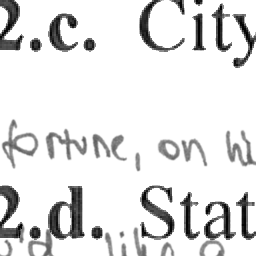 2.c. City
fortune, on hi
2.d. Stat
like a